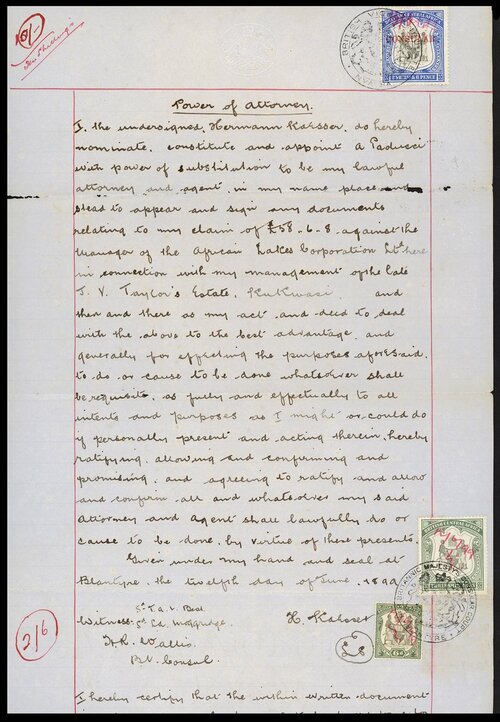 10/-
BRITISH CENTRAL AFRICA
CONSULAR
Power of Attorney.
I, the undersigned, Hermann Kahsser, do hereby
nominate, constitute and appoint A Paducci
with power of substitution to be my lawful
attorney and agent, in my name place and
stead to appear and sign any documents
relating to my claim of £58-6-8 against the
Manager of the African Lakes Corporation Ltd here
in connection with my management of the late
J. V. Taylor's Estate, and
then and there as my act and deed to deal
with the above to the best advantage, and
generally for effecting the purposes aforesaid,
to do or cause to be done whatsoever shall
be requisite, as fully and effectually to all
intents and purposes as I might or could do
if personally present and acting therein, hereby
ratifying, allowing and confirming and
promising, and agreeing to ratify and allow
and confirm all and whatsoever my said
Attorney and Agent shall lawfully do or
cause to be done, by virtue of these presents.
Given under my hand and seal at
Blantyre, the twelfth day of June, 1899
BRITISH CENTRAL AFRICA
Witness:
H.R. Wallis
B.V. Consul.
2/6
I hereby certify that the within written document